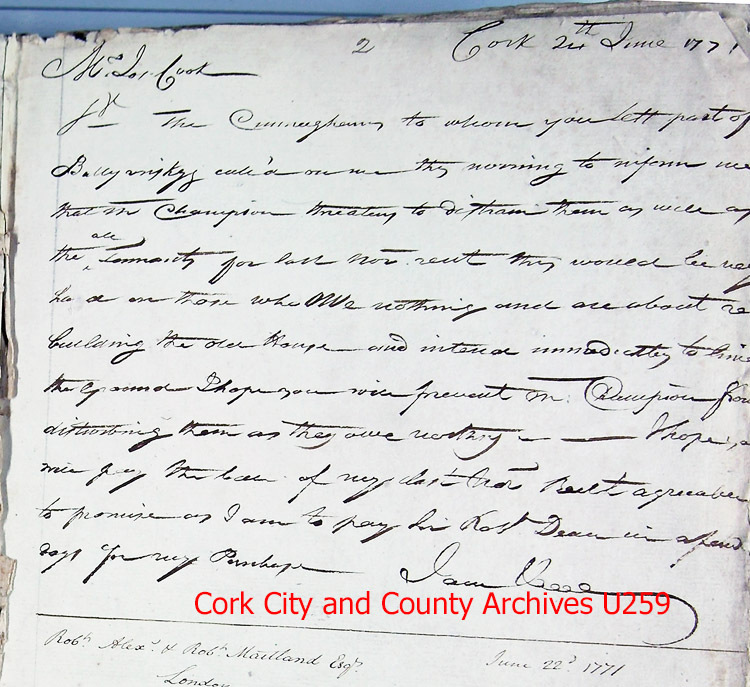 2 Cork 24th June 1771
Mr. Jos Cook
Sr The Cunninghams to whom you Lett part of
call'd on me this morning to inform me
that Mr Champion threatens to distrain them as well as
the old Tennants for last Novr. rent this would be very
hard on those who Owe nothing and are about re
building the old House and intend immediatley to
the Ground I hope you will prevent Mr. Champion from
disturbing them as they owe nothing — — I hope
will pay the ball. of my last Novr Rent agreeable
to promise as I am to pay Sir Robt Dean in a few
days for my Purchase I am
Cork City and County Archives U259
Robt. Alexr. & Robt. Maitland Esqr. June 22d. 1771
London